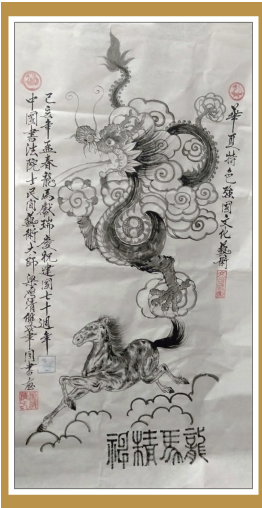 華夏特色強國文化藝術
己亥年孟春龍馬獻瑞慶祝建國七十週年
中國書法院士民間藝術大師
龍馬精神